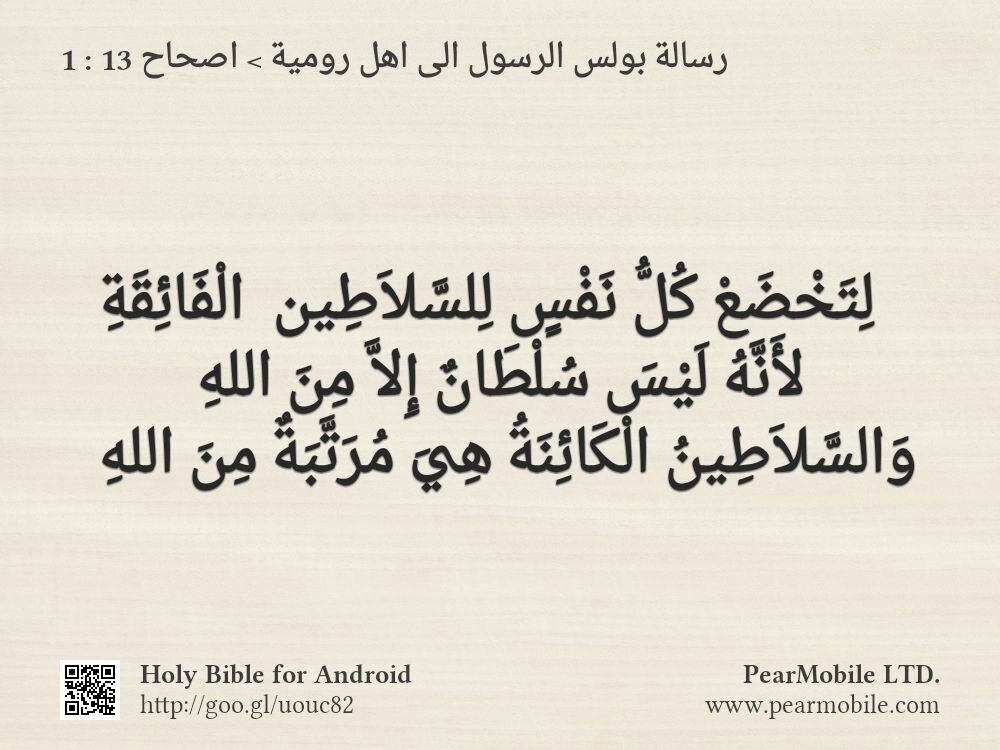 رسالة بولس الرسول الى اهل رومية > اصحاح 13 : 1
لِتَخْضَعْ كُلُّ نَفْسٍ لِلسَّلاَطِين الْفَائِقَةِ
لأَنَّهُ لَيْسَ سُلْطَانٌ إِلاَّ مِنَ اللهِ
وَالسَّلاَطِينُ الْكَائِنَةُ هِيَ مُرَتَّبَةٌ مِنَ اللهِ
Holy Bible for Android
http://goo.gl/uouc82
PearMobile LTD.
www.pearmobile.com